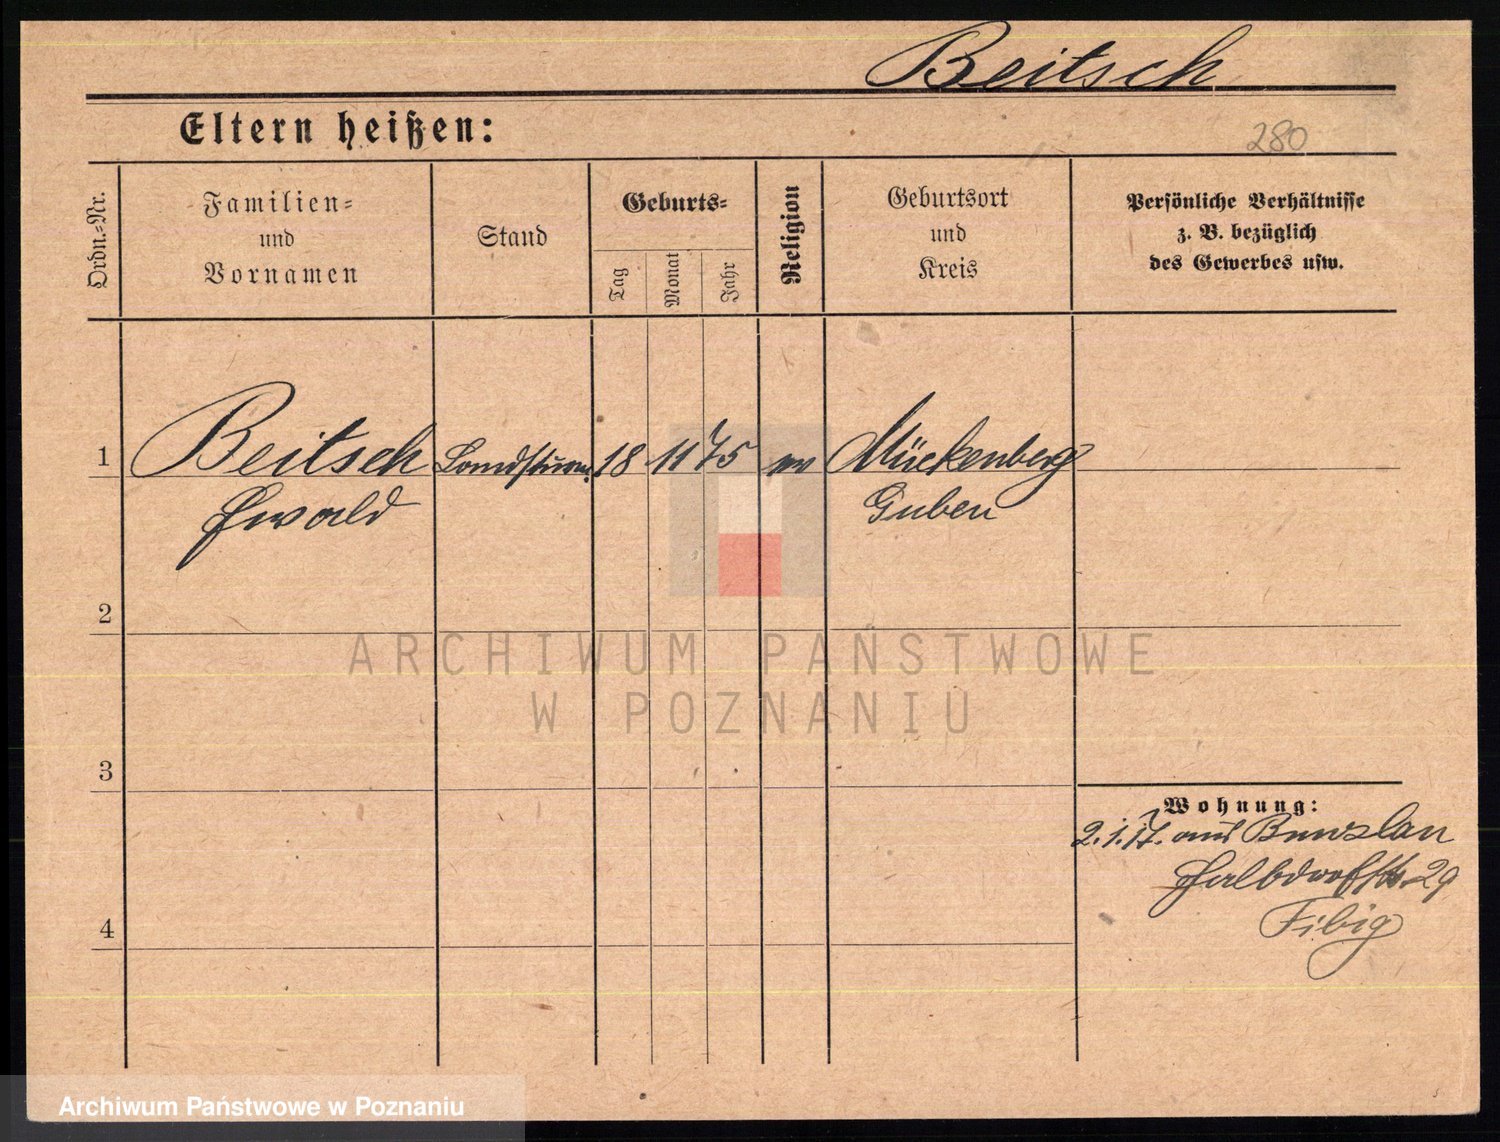 Beitsch
Eltern heißen:
280
Ordn.-Nr.
Familien-
und
Vornamen
Stand
Geburts-
Tag
Monat
Jahr
Religion
Geburtsort
und
Kreis
Persönliche Verhältnisse
z. B. bezüglich
des Gewerbes usw.
1 Beitsch Landsturm. 18 11 75 ev Mückenberg
Ewald Guben
2
ARCHIWUM PAŃSTWOWE
W POZNANIU
3
Wohnung:
2.1.17. aus Bunzlau
Halbdorfstr. 29
Fibig
4
Archiwum Państwowe w Poznaniu